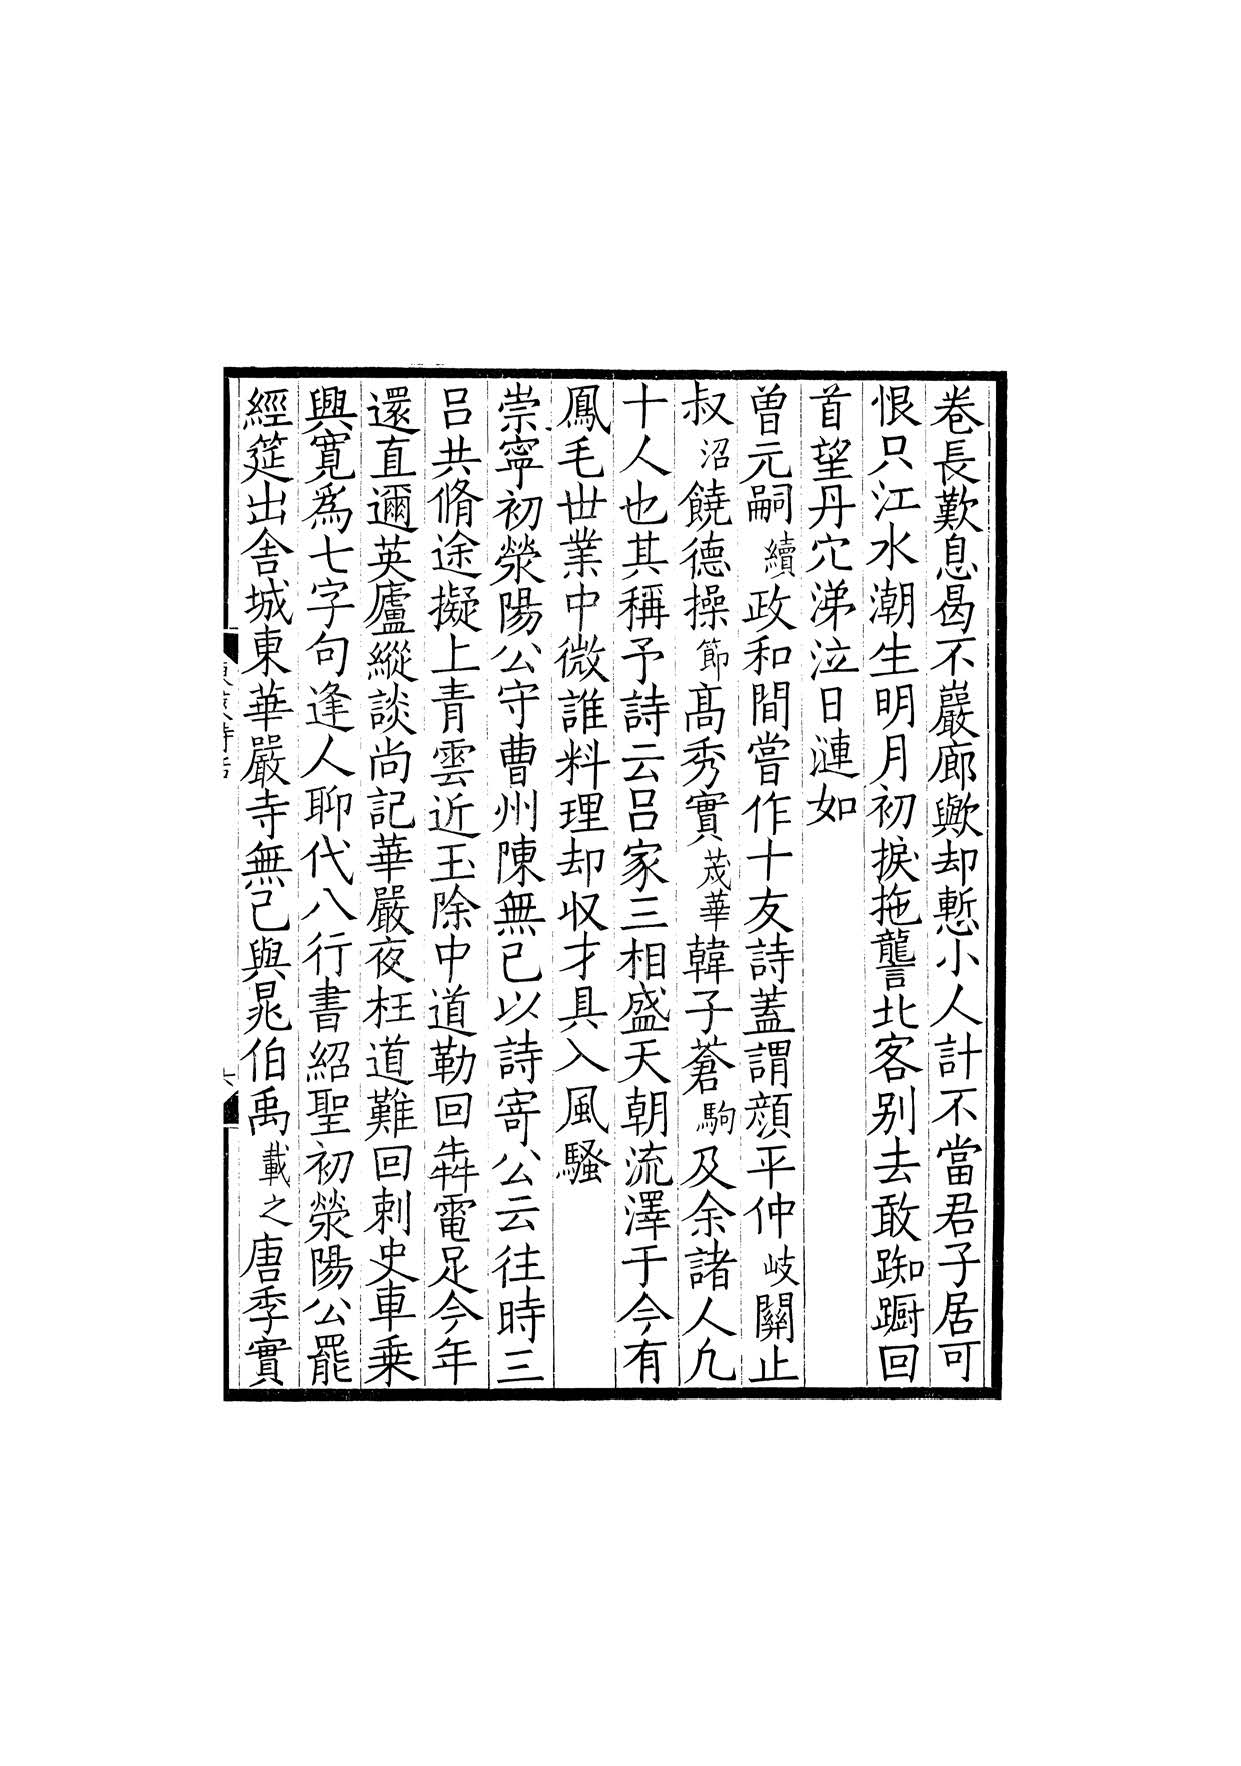 卷長歎息曷不巖廊歟却慙小人計不當君子居可
恨只江水潮生明月初捩拖讋北客别去敢踟蹰回
首望丹穴涕泣日漣如
曾元嗣續政和間嘗作十友詩蓋謂顔平仲岐關止
叔沼饒德操節髙秀實茂華韓子蒼駒及余諸人凢
十人也其稱予詩云吕家三相盛天朝流澤于今有
鳳毛世業中微誰料理却収才具入風騷
崇寧初滎陽公守曹州陳無己以詩寄公云往時三
吕共脩途擬上青雲近玉除中道勒回犇電足今年
還直邇英廬縱談尚記華嚴夜枉道難回刺史車乗
興寛爲七字句逢人聊代八行書紹聖初滎陽公罷
經筵出舎城東華嚴寺無己與晁伯禹載之唐季實